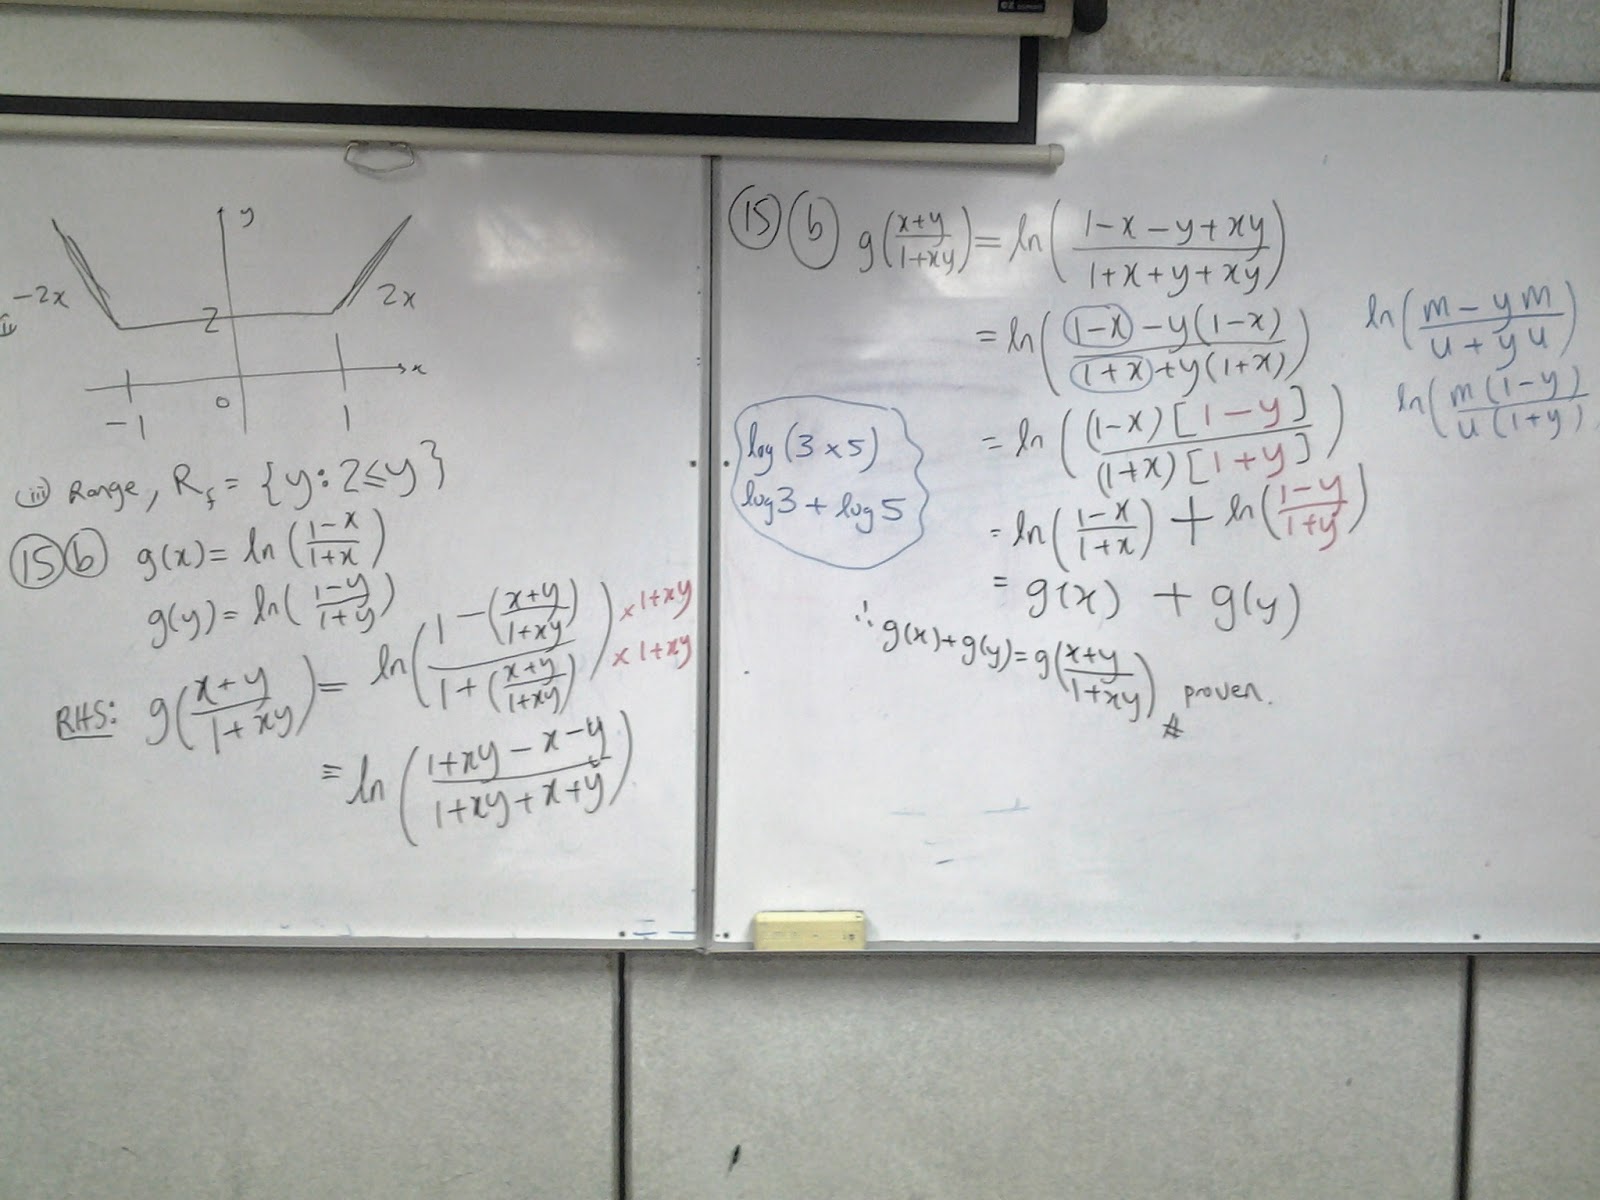 y
-2x
2x
2
x
0
-1
1
(iii) Range, R_f = {y : 2 ≤ y}
(15) (b) g(x) = ln((1-x)/(1+x))
g(y) = ln((1-y)/(1+y))
RHS: g((x+y)/(1+xy)) = ln((1-((x+y)/(1+xy)))/(1+((x+y)/(1+xy)))) ×1+xy ×1+xy
= ln((1+xy-x-y)/(1+xy+x+y))
(15) (b) g((x+y)/(1+xy)) = ln((1-x-y+xy)/(1+x+y+xy))
= ln((1-x-y(1-x))/(1+x+y(1+x)))
= ln(((1-x)[1-y])/((1+x)[1+y]))
= ln((1-x)/(1+x)) + ln((1-y)/(1+y))
= g(x) + g(y)
∴ g(x)+g(y) = g((x+y)/(1+xy)) proven. #
log(3×5)
log3 + log5
ln((m-ym)/(u+yu))
ln((m(1-y))/(u(1+y))